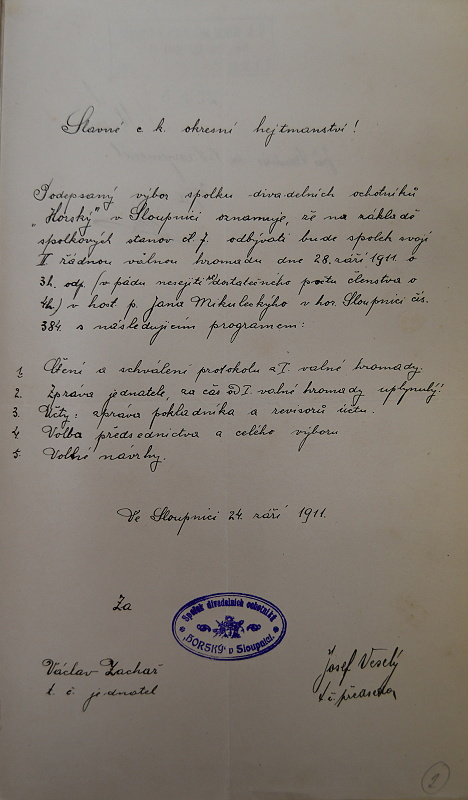 Slavné c. k. okresní hejtmanství!
Podepsaný výbor spolku divadelních ochotníků
„Horský" v Sloupnici oznamuje, že na základě
spolkových stanov čl. 7. odbývati bude spolek svoji
II řádnou valnou hromadu dne 28. září 1911 o
3h. odp. (v pádu nesejití se dostatečného počtu členstva o
4h.) v host. p. Jana Mikuleckýho v hor. Sloupnici čís.
384 s následujícím programem:
1. Čtení a schválení protokolu z I. valné hromady.
2. Zpráva jednatele, za čas od I. valné hromady uplynulý.
3. Účty: zpráva pokladníka a revisorů účtu.
4. Volba předsednictva a celého výboru
5. Volné návrhy.
Ve Sloupnici 24. září 1911.
Za
Spolek divadelních ochotníků
„HORSKÝ" v Sloupnici.
Václav Zachař
t. č. jednatel
Josef Veselý
t. č. předseda
2